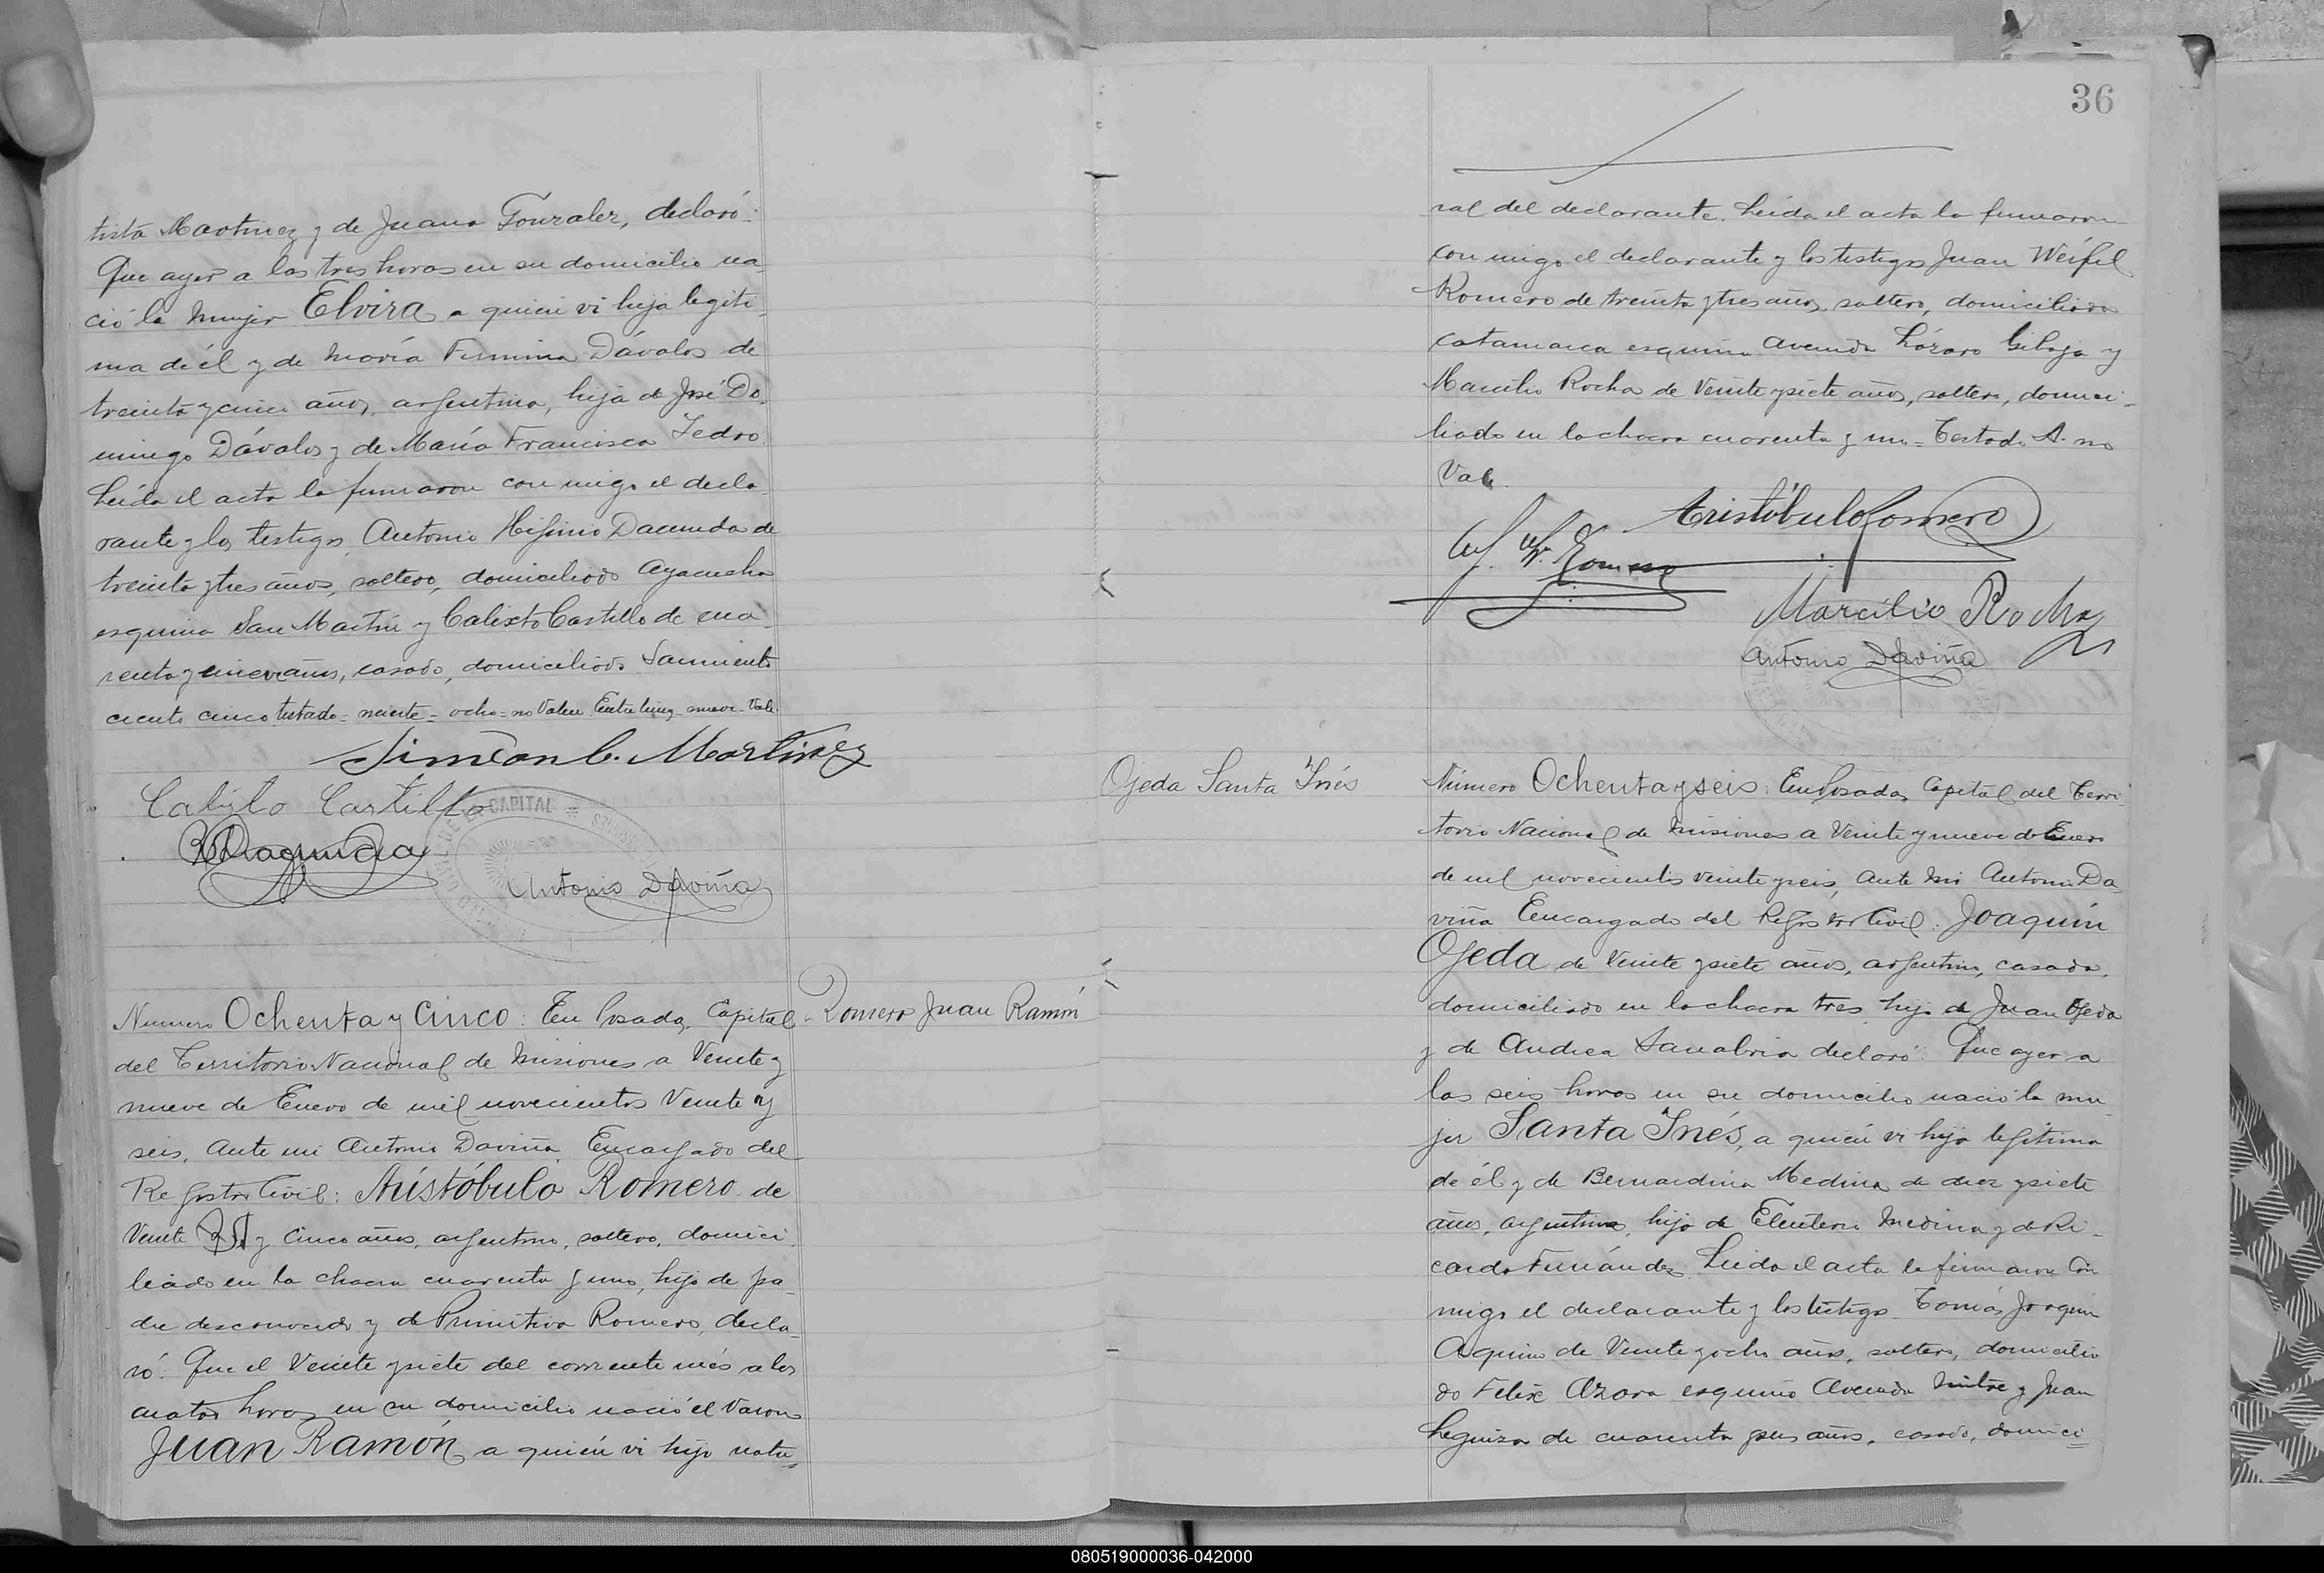 tista Martinez y de Juana Gonzalez, declaró:
Que ayer a las tres horas en su domicilio na-
ció la mujer Elvira a quien vi hija legiti-
ma de él y de María Fermina Dávalos de
treinta y cinco años, argentina, hija de José Do-
mingo Dávalos y de María Francisca Ledro.
Leida el acta la firmaron con migo el decla-
rante y los testigos Antonio Higinio Dacunda de
treinta y tres años, soltero, domiciliado Ayacucho
esquina San Martín y Calixto Castillo de cua-
renta y nueve años, casado, domiciliado Sarmiento
ciento cinco testado = veinte = ocho = no Valen Entre linea - nueve - Vale.
Simeon C. Martinez
Calixto Castillo
CAPITAL
Antonio Daviña
Número Ochenta y Cinco: En Posadas, Capital
Romero Juan Ramón
del Territorio Nacional de Misiones a Veinte y
nueve de Enero de mil novecientos Veinte y
seis, ante mi Antonio Daviña Encargado del
Registro Civil: Aristóbulo Romero de
Veinte y Cinco años, argentino, soltero, domici-
liado en la chacra cuarenta y uno, hijo de pa-
dre desconocido y de Primitiva Romero, decla-
ró: Que el Veinte y siete del corriente mes a las
cuatro horas en su domicilio nació el Varon
Juan Ramón, a quién vi hijo natu-
36
ral del declarante. Leida el acta la firmaron
con migo el declarante y los testigos Juan Weifel
Romero de treinta y tres años, soltero, domiciliado
Catamarca esquina Avenida Lázaro Gibaja y
Marcilio Rocha de Veinte y siete años, soltero, domici-
liado en la chacra cuarenta y uno = Testado A. no
Vale.
Aristóbulo Romero
W. Romero
Marcilio Rocha
Antonio Daviña
Ojeda Santa Inés
Número Ochenta y seis: En Posadas, Capital del Terri-
torio Nacional de Misiones a Veinte y nueve de Enero
de mil novecientos veinte y seis, ante mi Antonio Da-
viña Encargado del Registro Civil: Joaquín
Ojeda de Veinte y siete años, argentino, casado,
domiciliado en la chacra tres, hijo de Juan Ojeda
y de Andrea Sanabria declaró: Que ayer a
las seis horas en su domicilio nació la mu-
jer Santa Inés, a quién vi hija legítima
de él y de Bernardina Medina de diez y siete
años, argentina, hija de Eleuterio Medina y de Ri-
carda Fernández. Leida el acta la firmaron con
migo el declarante y los testigos Tomás Joaquin
Aquino de Veinte y ocho años, soltero, domicilia-
do Felix Azara esquina Avenida Mitre y Juan
Leguiza de cuarenta y seis años, casado, domici-
080519000036-042000